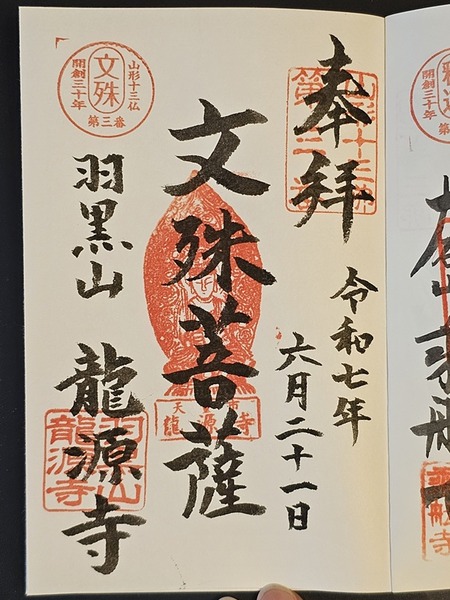 奉拝
山形十三仏
第三番
令和七年
六月二十一日
文殊菩薩
龍源寺
山形十三仏
文殊
開創三十年
第三番
羽黒山 龍源寺
羽黒山
龍源寺
開創三十年